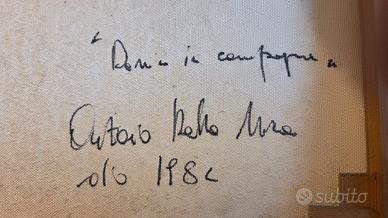 " Donna in campagna "
Antonio Della
olio 1982
subito